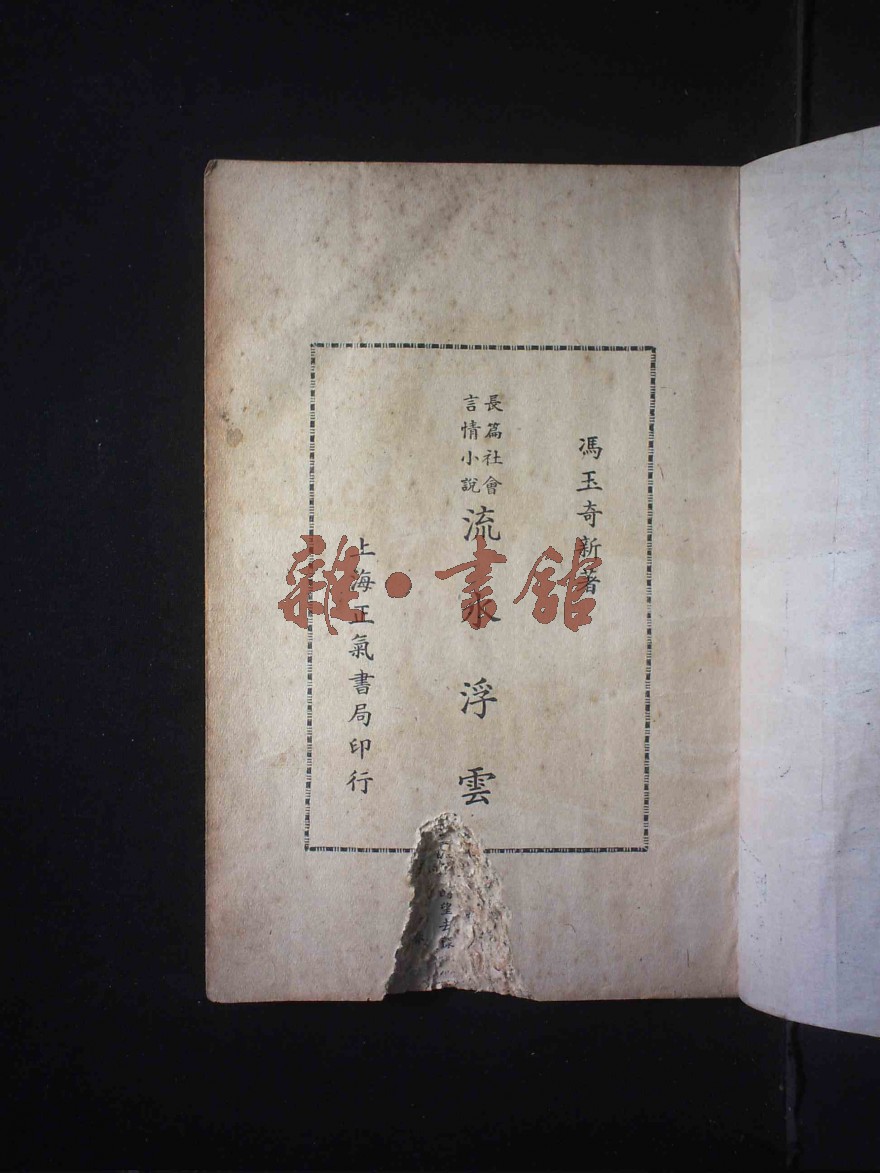 馮玉奇新著
長篇社會
言情小說
流水浮雲
上海正氣書局印行
雜·書館
望去